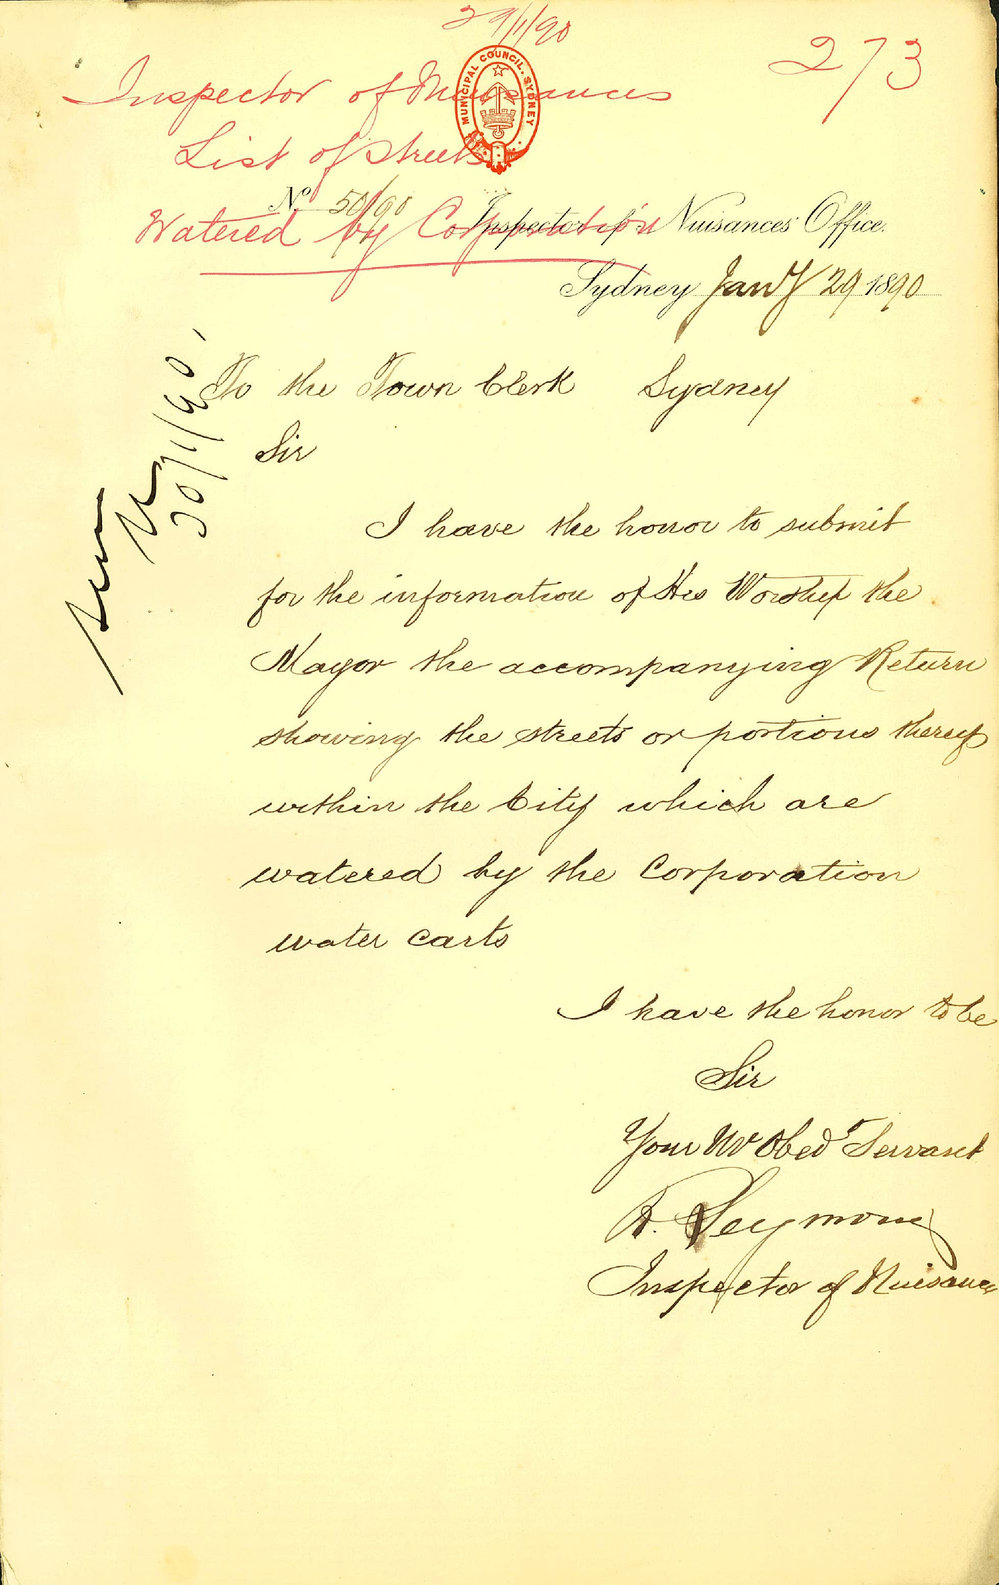 29/1/90
273
Inspector of Nuisances
List of streets
Watered by Corporation
MUNICIPAL COUNCIL. SYDNEY
No. 50/90
Inspector of Nuisances' Office.
Sydney Jany 29 1890
To the Town Clerk Sydney
Sir
I have the honor to submit
for the information of His Worship the
Mayor the accompanying Return
showing the streets or portions thereof
within the City which are
watered by the Corporation
water carts
I have the honor to be
Sir
Your Obedt Servant
R. Seymour
Inspector of Nuisances
30/1/90